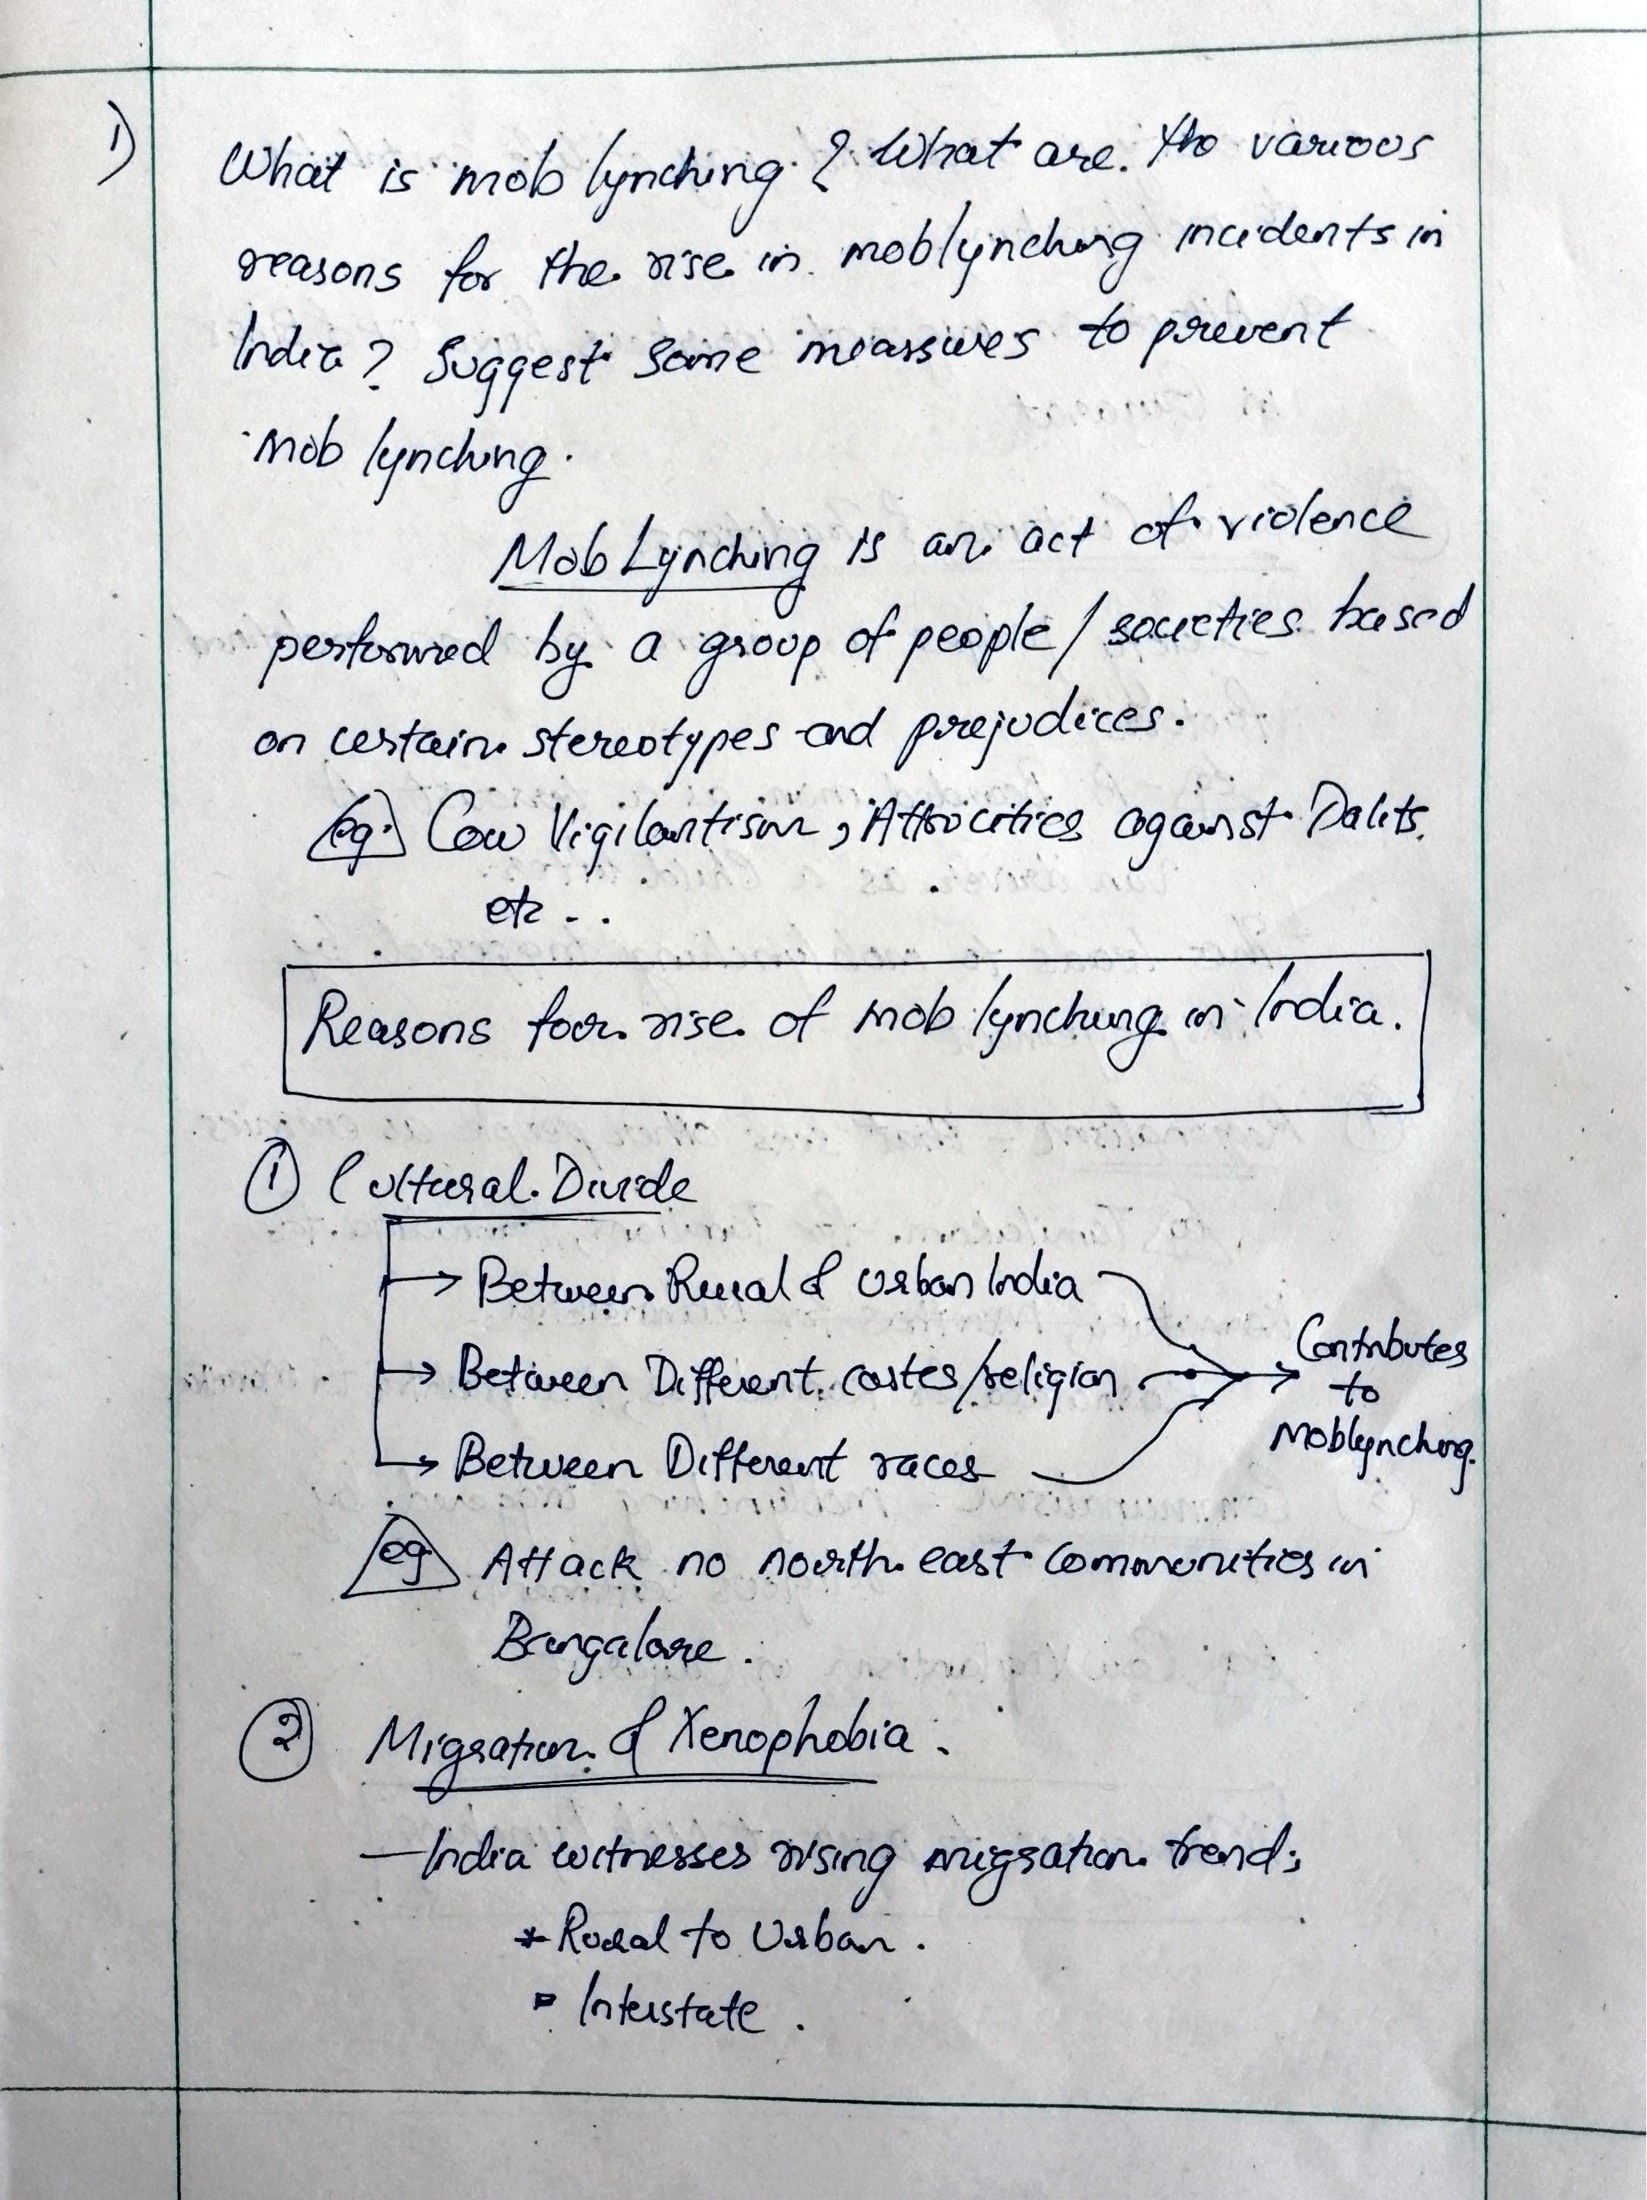 1) What is mob lynching ? What are the various
reasons for the rise in moblynching incidents in
India? Suggest some measures to prevent
mob lynching.
Mob Lynching is an act of violence
performed by a group of people / societies based
on certain stereotypes and prejudices.
eg. Cow Vigilantism, Attrocities against Dalits.
etc ..
Reasons foor rise of mob lynching in India.
① Cultural Divide
→ Between Rural & Urban India
→ Between Different castes/religion
→ Between Different races
→ Contributes
to
Moblynching.
eg Attack no north east communities in
Bangalore.
② Migration & Xenophobia.
— India witnesses rising migration trend;
* Rural to Urban.
Interstate.